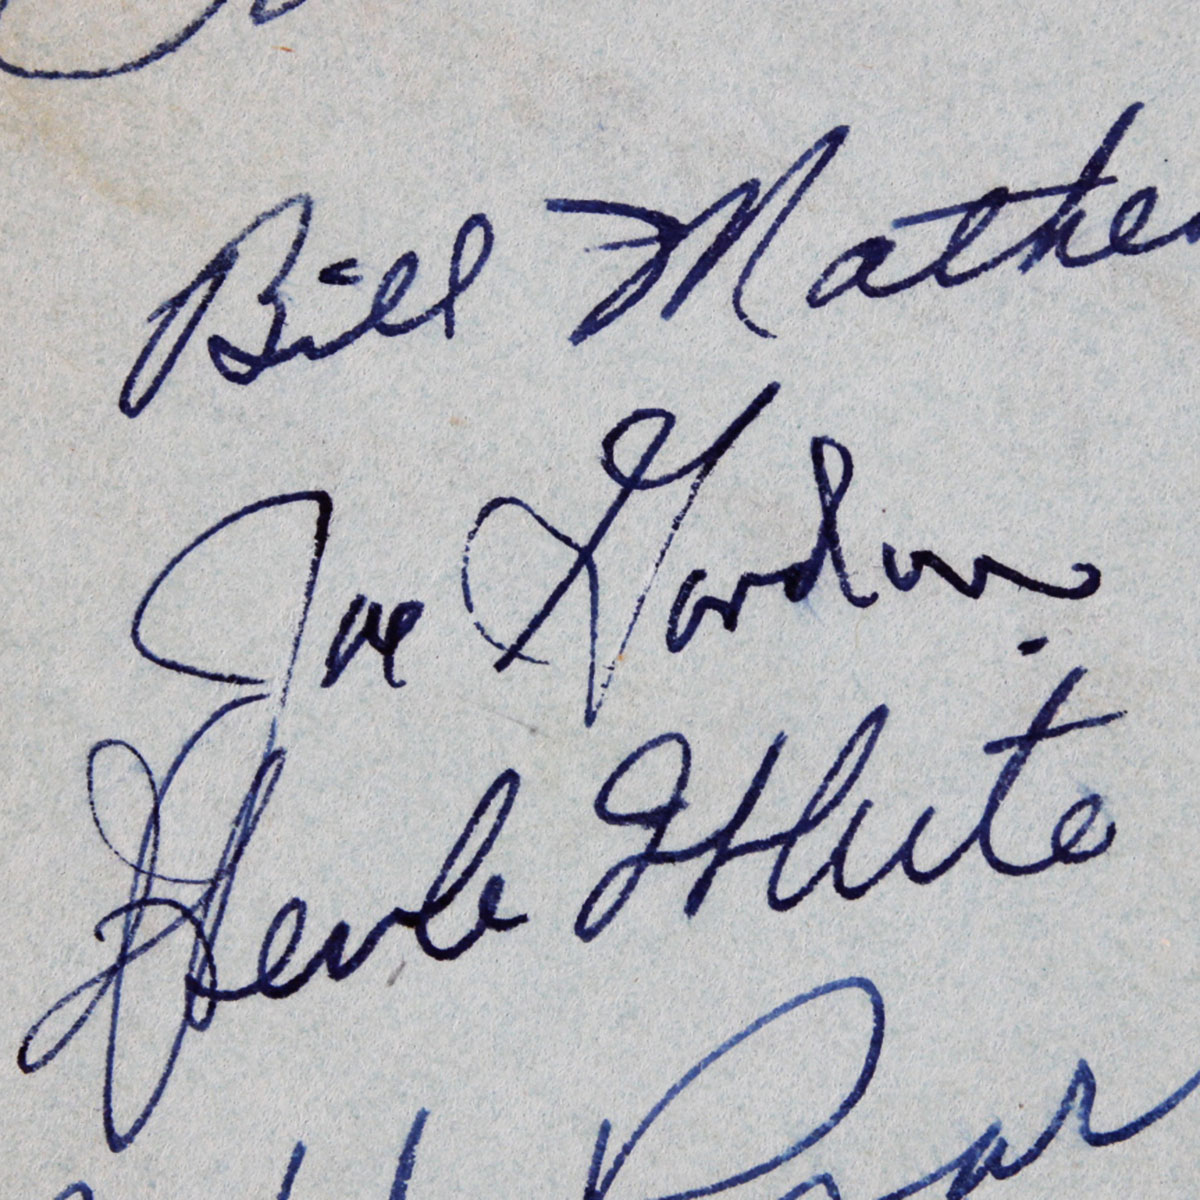 Bill Mathe
Joe Gordon
Herb White